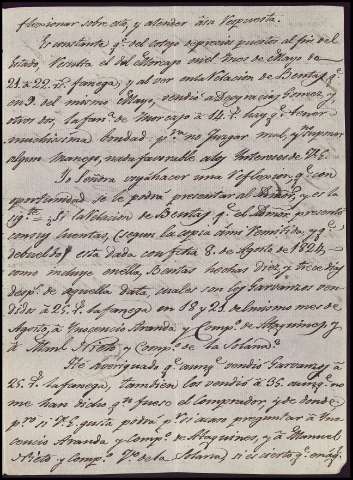 flexionar sobre esto, y atender à su respuesta.
Es constante q.e del cotejo de precios puestos al fin del
citado, resulta el del Morcajo en el mes de Mayo de
21. à 22. r.s fanega, y al ver en la relacion de Bentas q.e
en 9. del mismo Mayo, vendió à Deogracias Gomez, y
otros dos, la fan.a de Morcajo à 14. r.s hay q.e tener
muchisima bondad p.a no juzgar mal, y suponer
algun manejo, nada faborable a los Intereses de V.E.
Yo Señora voy à hacer una reflexion q.e con
oportunidad se le podrá presentar al Admor, y es la
sig.te Si la relacion de Bentas q.e el Admor. presentó
con sus cuentas, (segun la copia à mi remitida, y q.e
debuelbo) está dada con fecha 8. de Agosto de 1824.
como incluye en ella, Bentas hechas diez, y trece dias
desp.s de aquella data, cuales son los Garvanzos ven-
didos à 25. r.s la fanega en 18 y 21 del mismo mes de
Agosto, à Inocencio Aranda y Comp.s de Ataquines, y
à Man.l Nieto, y Comp.s de la Solana?
He averiguado q.e aunq.e vendió Garvanzos à
25. r.s la fanega, tambien los vendió à 35. aunq.e no
me han dicho q.n fuese el Comprador, y de donde
p.ro si V.E. gusta podrá p.r si acaso preguntar à Ino-
cencio Aranda y Comp.s de Ataquines, y à Manuel
Nieto y Comp.s V.o de la Solana, si es cierto q.e en Ag.